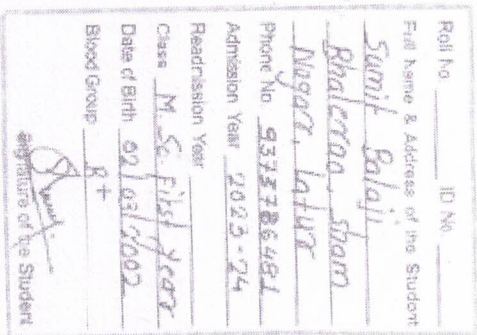 Roll No ID No
Full Name & Address of the Student
Sumit Balaji
Bhalerao, Sham
Nagar, Latur
Phone No 9373786481
Admission Year 2023-24
Readmission Year
Class M.Sc. First year
Date of Birth 02/03/2002
Blood Group B+
Signature of the Student